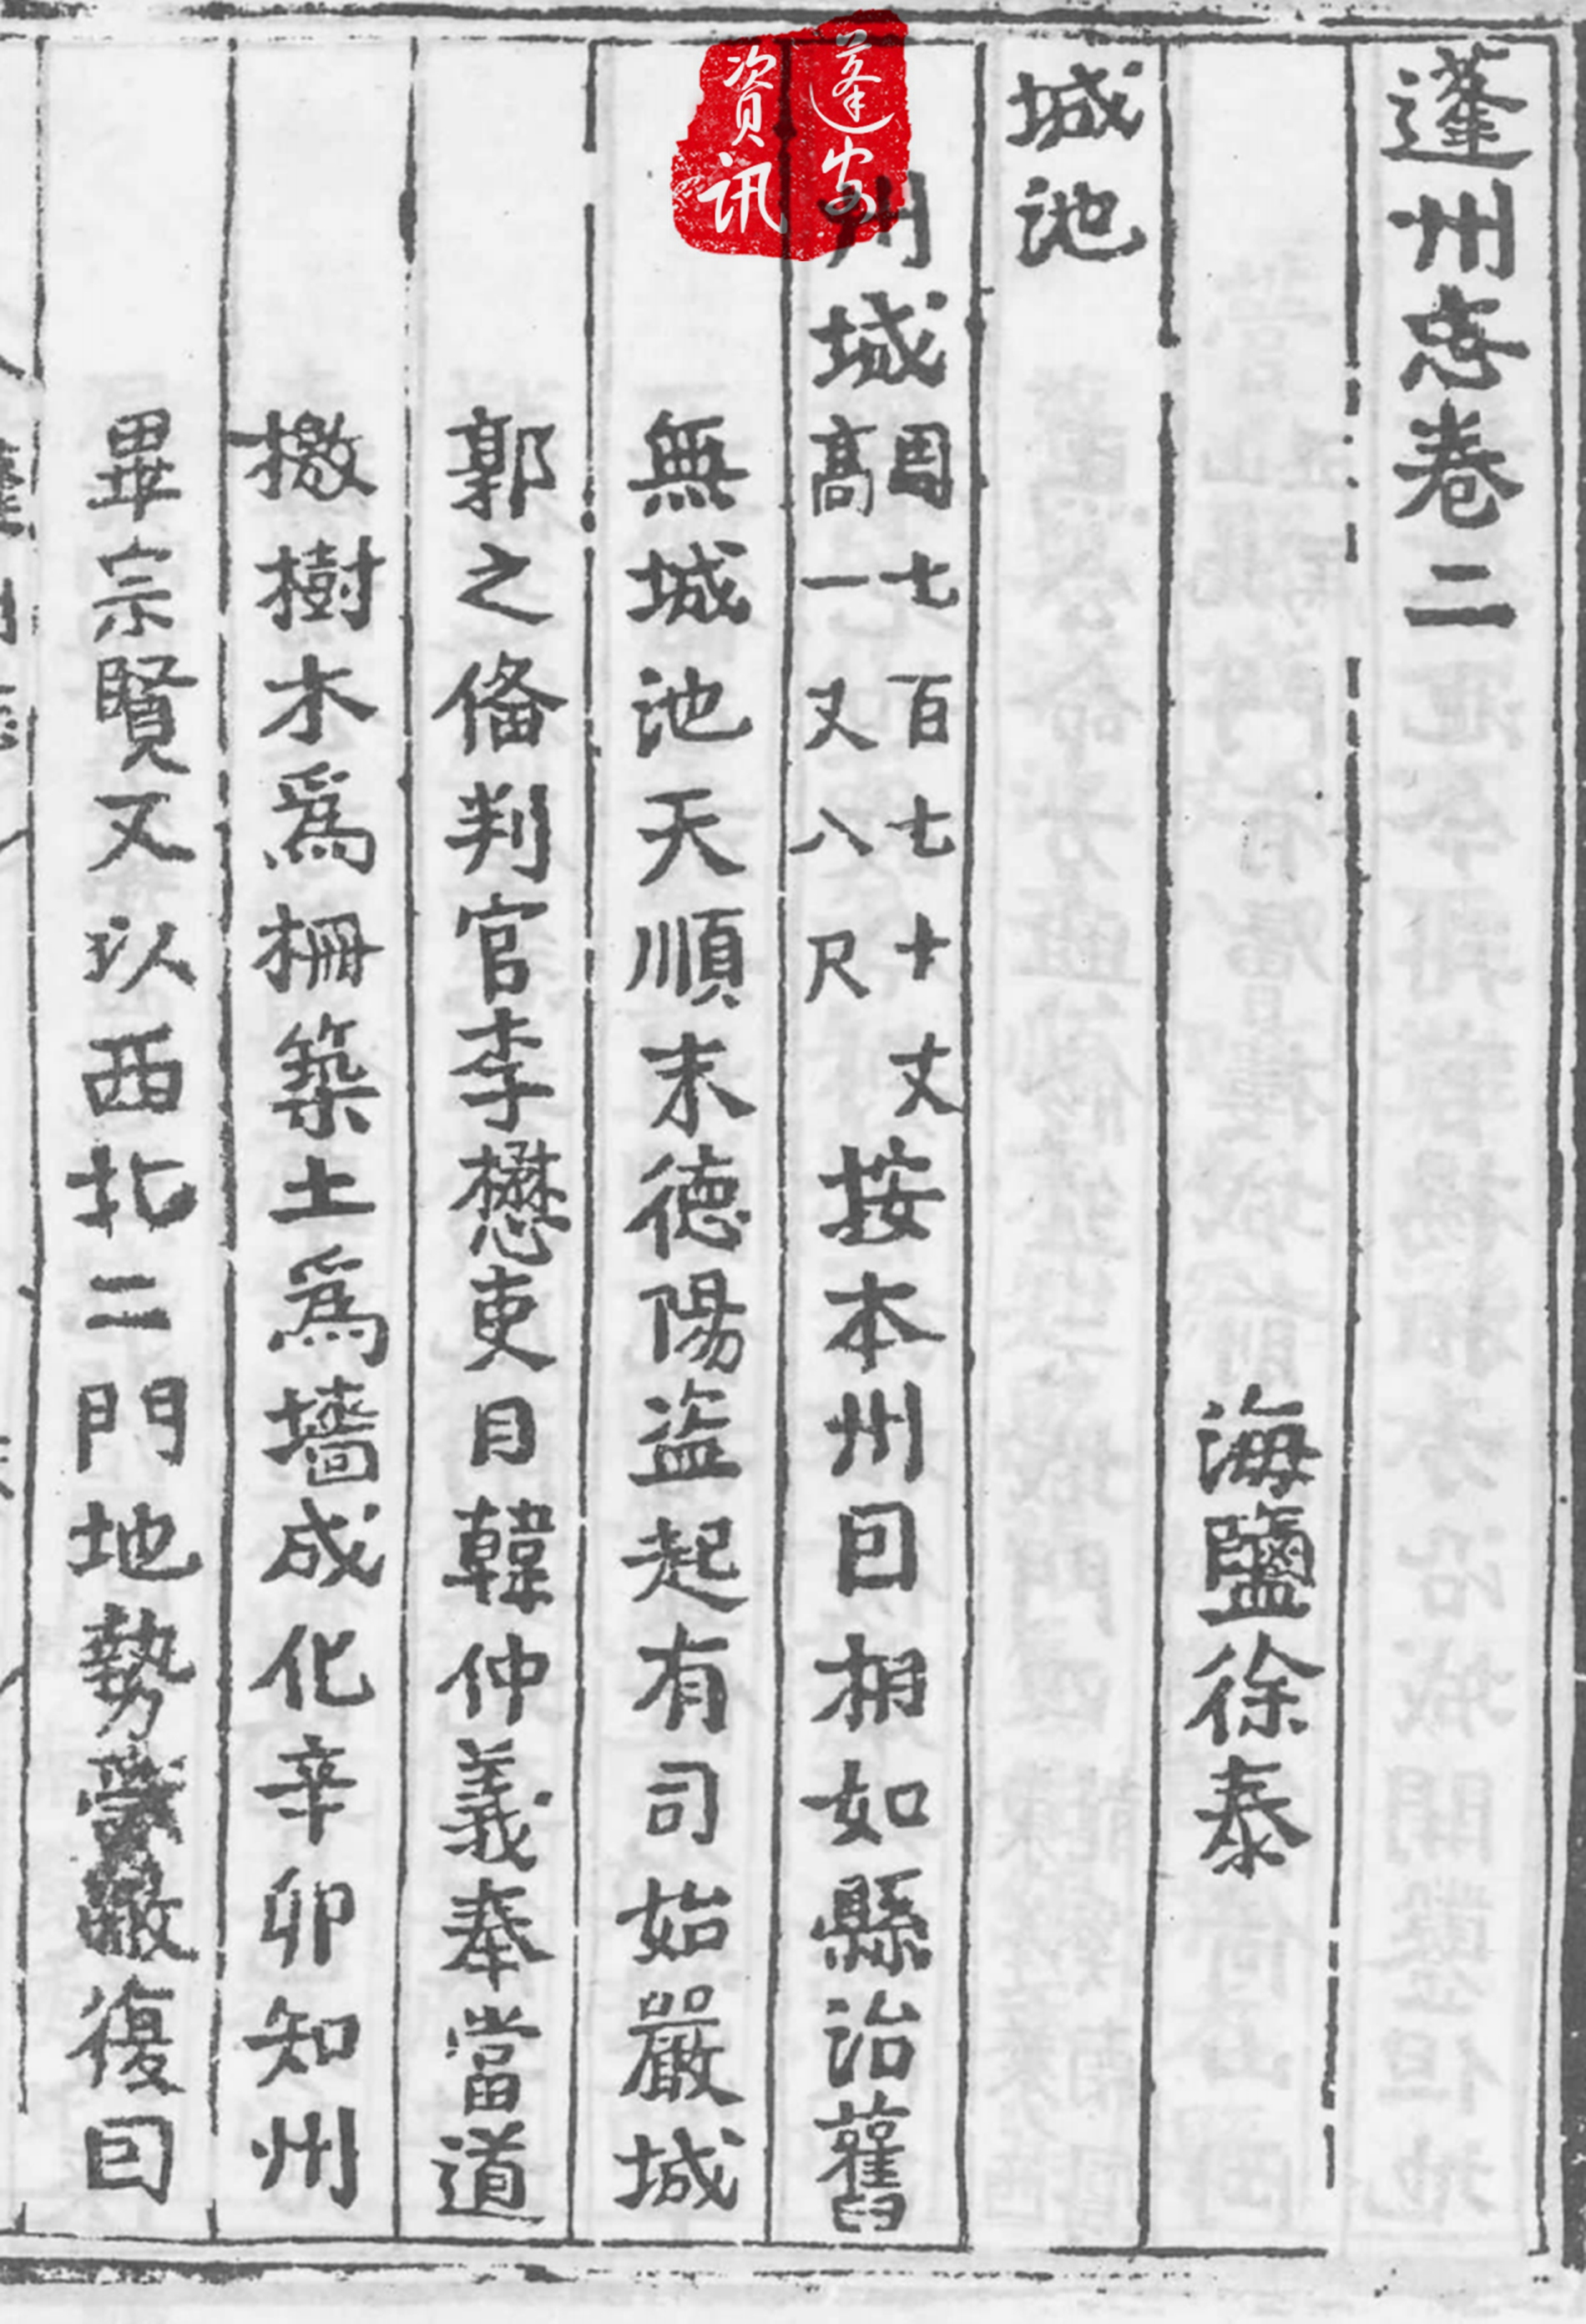 蓬州志卷二
海鹽徐泰
城池
州城周七百七十丈高一丈八尺按本州因相如縣治舊
無城池天順末德陽盗起有司始嚴城
郭之俻判官李懋吏目韓仲義奉當道
檄樹木爲柵築土爲墻成化辛卯知州
畢宗賢又以西北二門地勢復因
蓬安
资讯